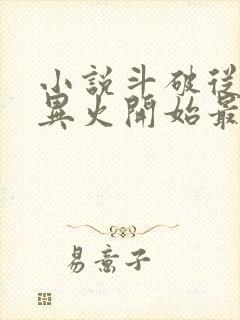 小說斗破從
異火開始最
易意子